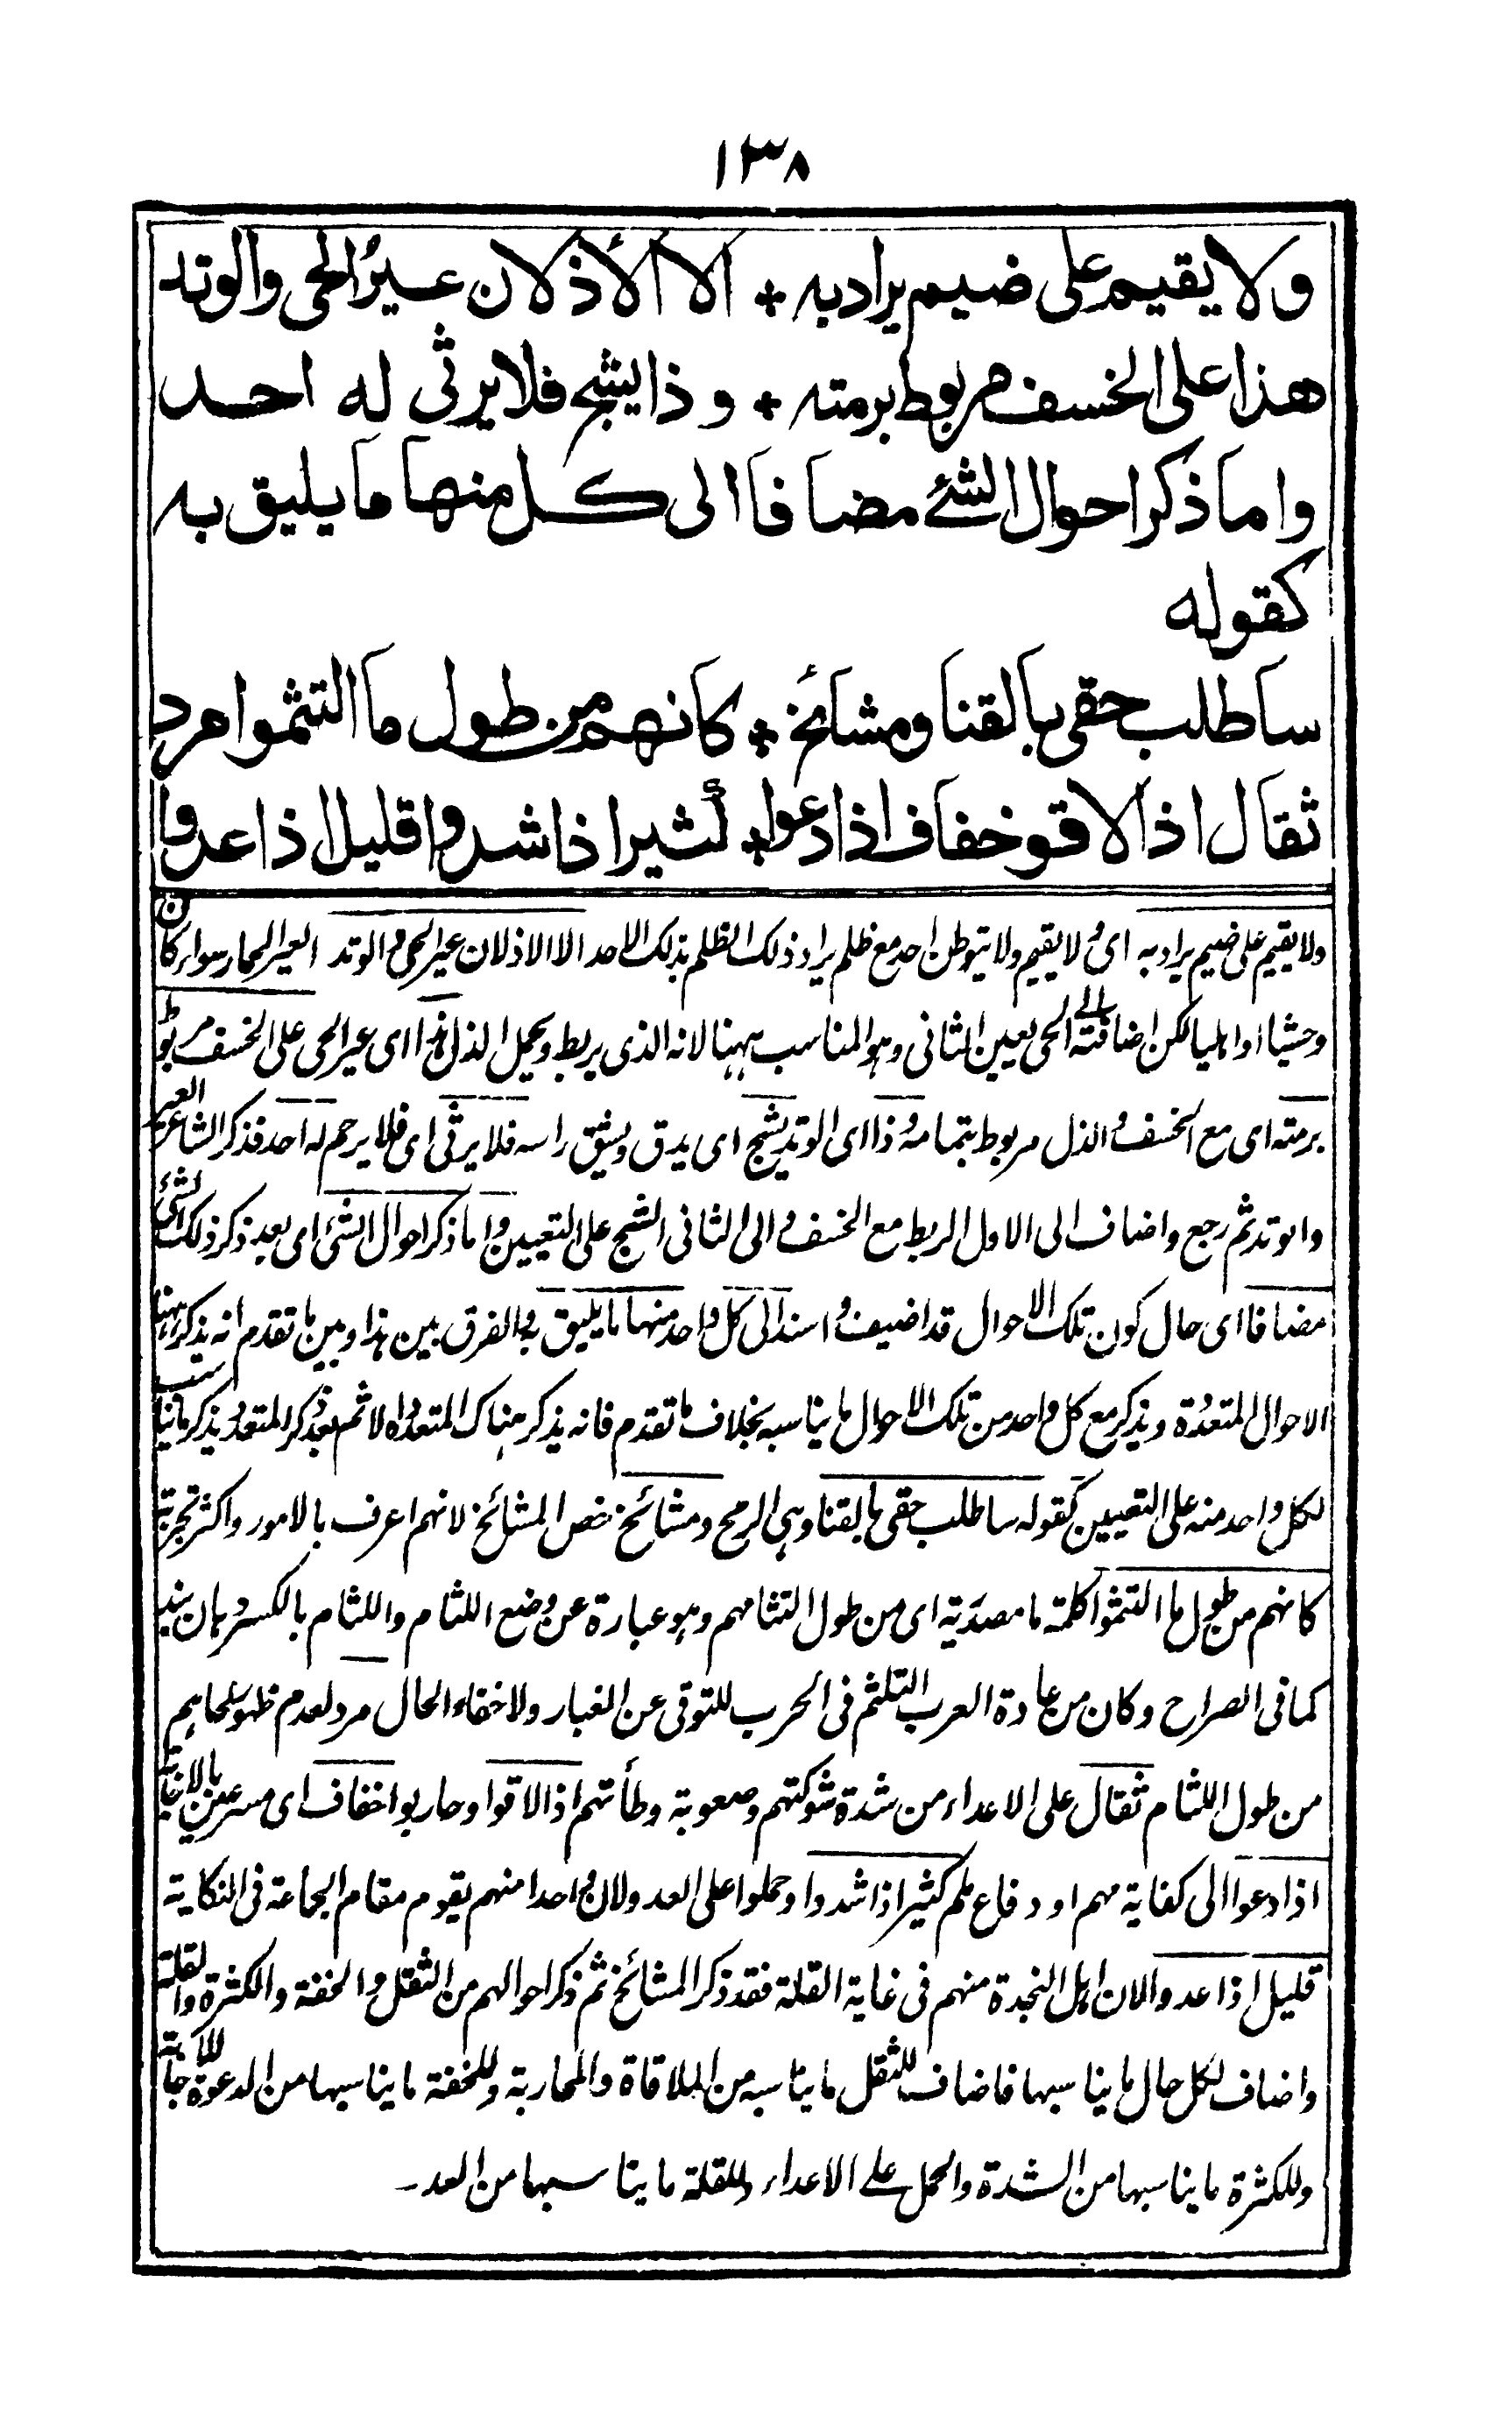 ١٣٨
ولا يقيم على ضيم يراد به * الا الأذلان عيرُ الحى والوتد
هذا على الخسف مربوط برمته * وذا يشج فلا يرثى له احد
واما ذكر احوال الشئ مضافا الى كل منها ما يليق به
كقوله
ساطلب حقى بالقنا ومشائخ * كانهم من طول ما التثموا مرد
ثقال اذا لاقوا خفاف اذا دعوا * كثير اذا شدوا قليل اذا عدوا
ولا يقيم على ضيم يراد به اى لا يقيم ولا يتوطن احد مع ظلم يراد ذلك الظلم بذلك الاحد الا الاذلان عير الحى والوتد العير الحمار سواء كان
وحشيا او اهليا لكن اضافته الى الحى يعين الثانى وهو المناسب ههنا لانه الذى يربط ويحمل الذل هذا اى عير الحى على الخسف مربوط
برمته اى مع الخسف والذل مربوط بتمامه وذا اى الوتد يشج اى يدق ويشق راسه فلا يرثى اى فلا يرحم له احد فذكر الشاعر العير
والوتد ثم رجع واضاف الى الاول الربط مع الخسف والى الثانى الشج على التعيين واما ذكر احوال الشئ اى بعد ذكر ذلك الشئ
مضافا اى حال كون تلك الاحوال قد اضيف واسند الى كل واحد منها ما يليق به والفرق بين هذا وبين ما تقدم انه يذكر ههنا
الاحوال المتعددة ويذكر مع كل واحد من تلك الاحوال ما يناسبه بخلاف ما تقدم فانه يذكر هناك المتعدد اولا ثم بعد ذكر المتعدد يذكر ما يناسب
لكل واحد منه على التعيين كقوله ساطلب حقى بالقنا وهى الرمح ومشائخ خص المشائخ لانهم اعرف بالامور واكثر تجربة
كانهم من طول ما التثموا كلمة ما مصدرية اى من طول التثامهم وهو عبارة عن وضع اللثام واللثام بالكسر دهان بند
كما فى الصراح وكان من عادة العرب التلثم فى الحرب للتوقى عن الغبار ولاخفاء الحال مرد لعدم ظهور لحاهم
من طول اللثام ثقال على الاعداء من شدة شوكتهم وصعوبة وطأتهم اذا لاقوا وحاربوا خفاف اى مسرعين بالاجابة
اذا دعوا الى كفاية مهم او دفاع ملم كثير اذا شدوا وحملوا على العدو لان واحدا منهم يقوم مقام الجماعة فى النكاية
قليل اذا عدوا لان اهل النجدة منهم فى غاية القلة فقد ذكر المشائخ ثم ذكر احوالهم من الثقل والخفة والكثرة والقلة
واضاف لكل حال ما يناسبها فاضاف للثقل ما يناسبه من الملاقاة والمحاربة وللخفة ما يناسبها من الدعوة للاجابة
وللكثرة ما يناسبها من الشدة والحمل على الاعداء وللقلة ما يناسبها من العد۔